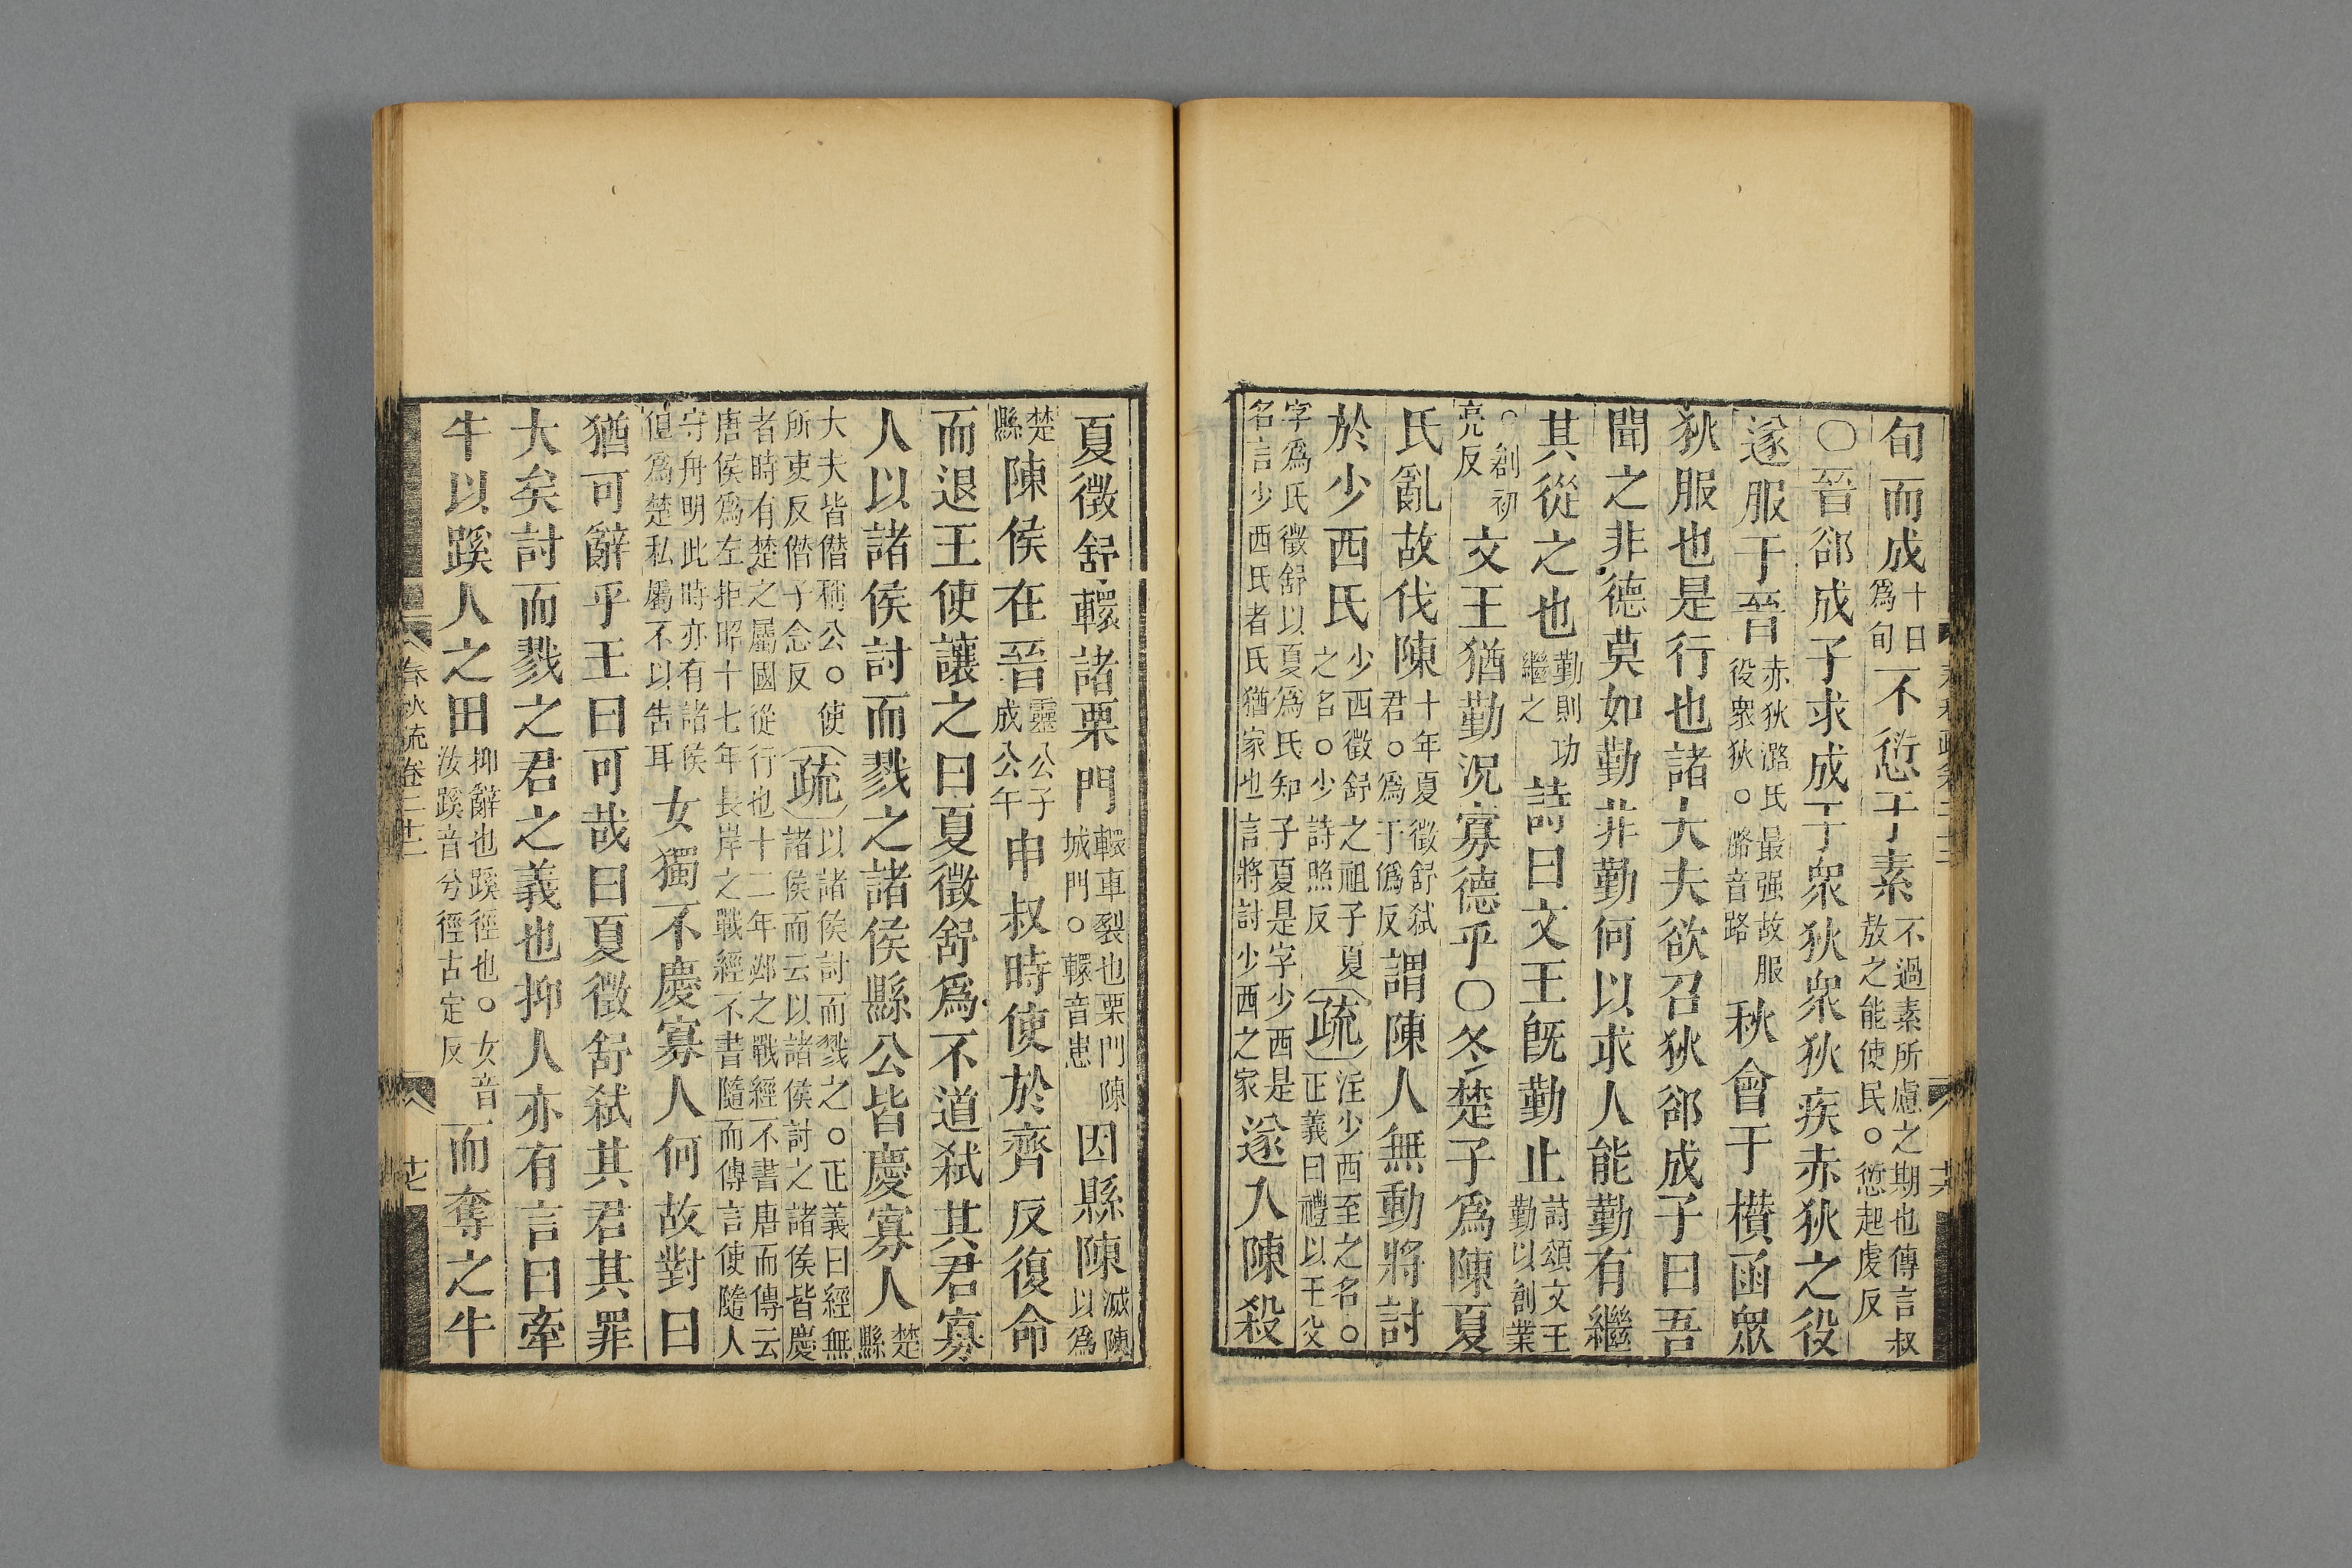 旬而成十日爲旬不愆于素不過素所慮之期也傳言叔敖之能使民○愆起虔反
○晉郤成子求成于衆狄衆狄疾赤狄之役
遂服于晉赤狄潞氏最强故服役衆狄○潞音路秋會于欑函眾
狄服也是行也諸大夫欲召狄郤成子曰吾
聞之非德莫如勤非勤何以求人能勤有繼
其從之也勤則功繼之詩曰文王旣勤止詩頌文王勤以創業
○創初亮反文王猶勤況寡德乎○冬楚子爲陳夏
氏亂故伐陳十年夏徵舒弑君○爲于僞反謂陳人無動將討
於少西氏少西徵舒之祖子夏之名○少詩照反疏注少西至之名○正義曰禮以王父
字爲氏徵舒以夏爲氏知子夏是字少西是名言少西氏者氏猶家也言將討少西之家遂入陳殺
夏徵舒轘諸栗門轘車裂也栗門陳城門○轘音患因縣陳滅陳以爲
楚縣陳侯在晉靈公子成公午申叔時使於齊反復命
而退王使讓之曰夏徵舒爲不道弑其君寡
人以諸侯討而戮之諸侯縣公皆慶寡人楚縣
大夫皆僭稱公○使所吏反僭子念反疏以諸侯討而戮之○正義曰經無諸侯而云以諸侯討之諸侯皆慶
者時有楚之屬國從行也十二年邲之戰經不書唐而傳云唐侯爲左拒昭十七年長岸之戰經不書隨而傳言使隨人
守舟明此時亦有諸侯但爲楚私屬不以告耳女獨不慶寡人何故對曰
猶可辭乎王曰可哉曰夏徵舒弑其君其罪
大矣討而戮之君之義也抑人亦有言曰牽
牛以蹊人之田抑辭也蹊徑也○女音汝蹊音兮徑古定反而奪之牛
春秋疏卷二十二